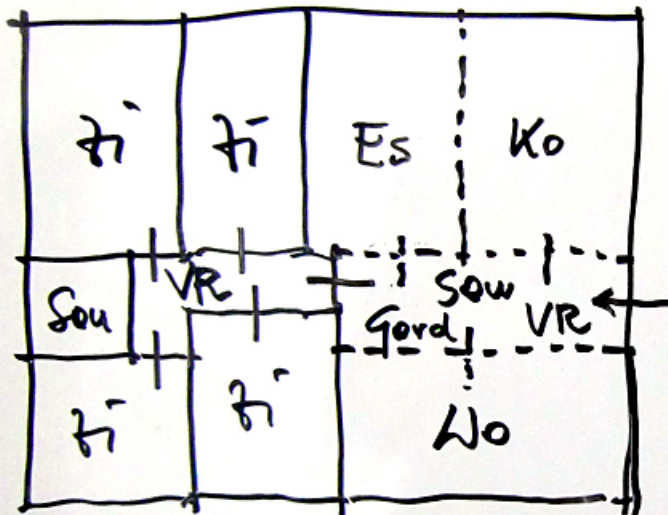 Zi Zi Es Ko
San VR Gard VR
Zi Zi Wo